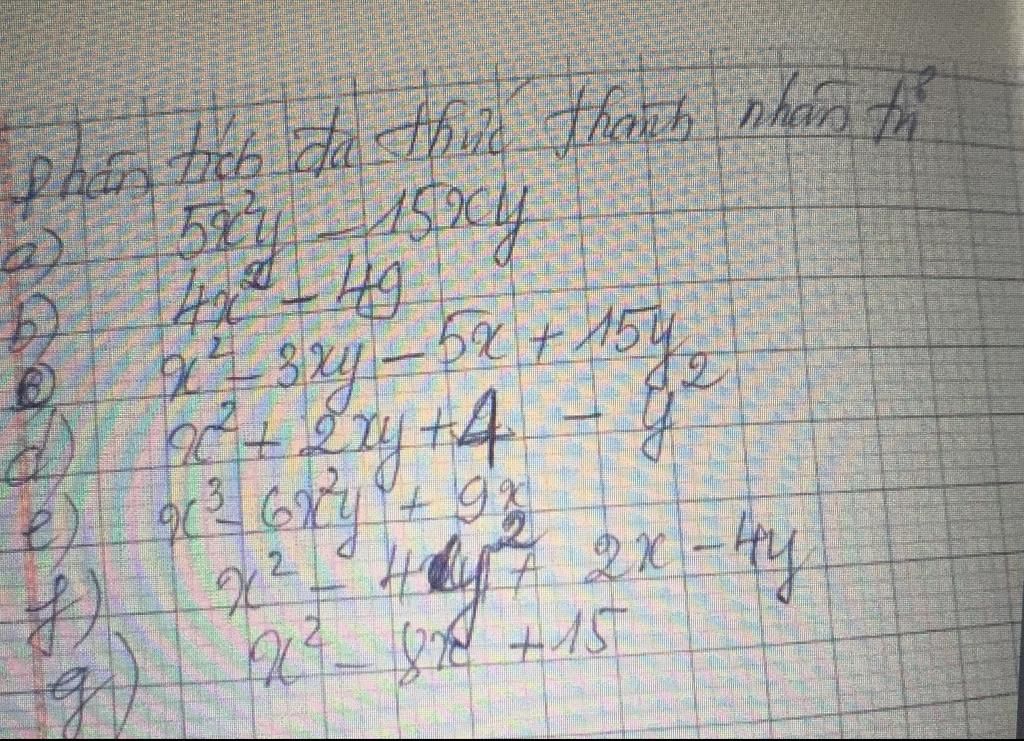 phân tích đa thức thành nhân tử
a) 5x²y - 15xy
b) 4x² - 49
c) x² - 3xy - 5x + 15y
d) x² + 2xy + 4 - y²
e) x³ - 6x²y + 9x
f) x² - 4y² + 2x - 4y
g) x² - 8x + 15